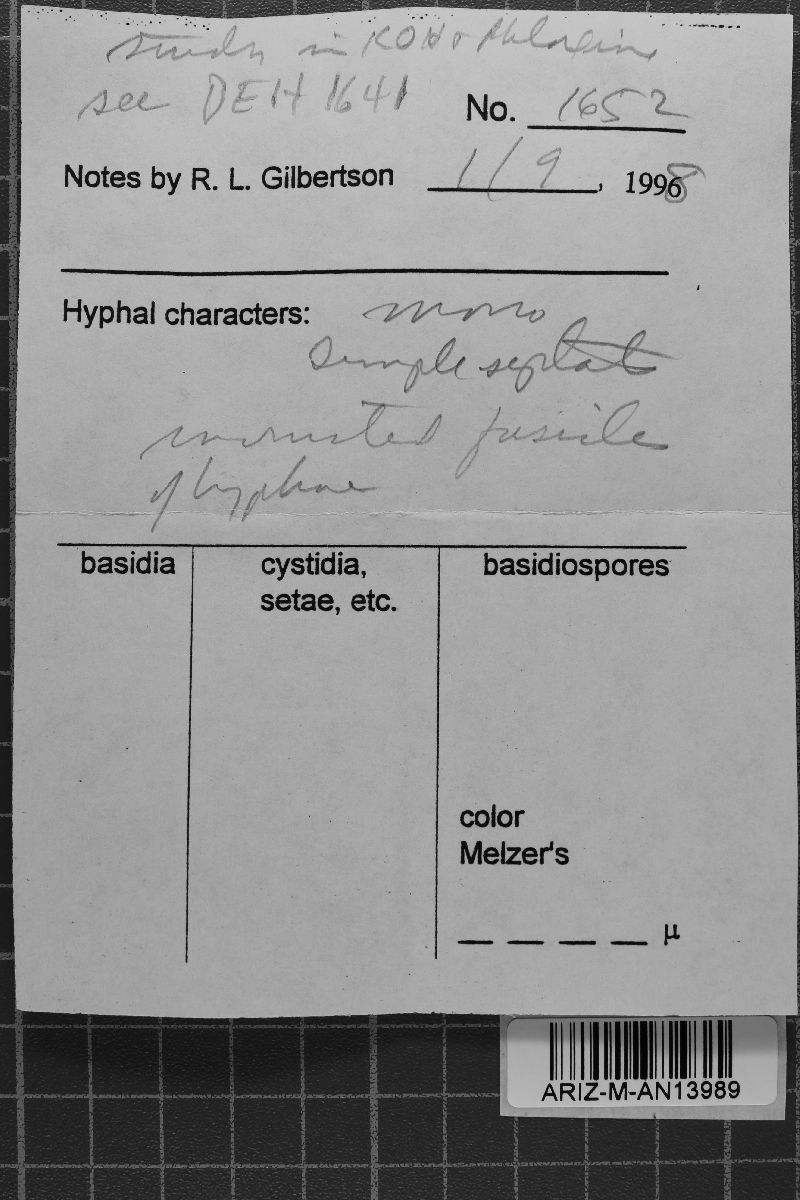 study in KOH + Phloxine
see DEH 1641
No. 1652
Notes by R. L. Gilbertson 1/9, 1998
Hyphal characters: mono
simple septate
incrusted fusicle
of hyphae
basidia
cystidia,
setae, etc.
basidiospores
color
Melzer's
_ _ _ _ µ
ARIZ-M-AN13989